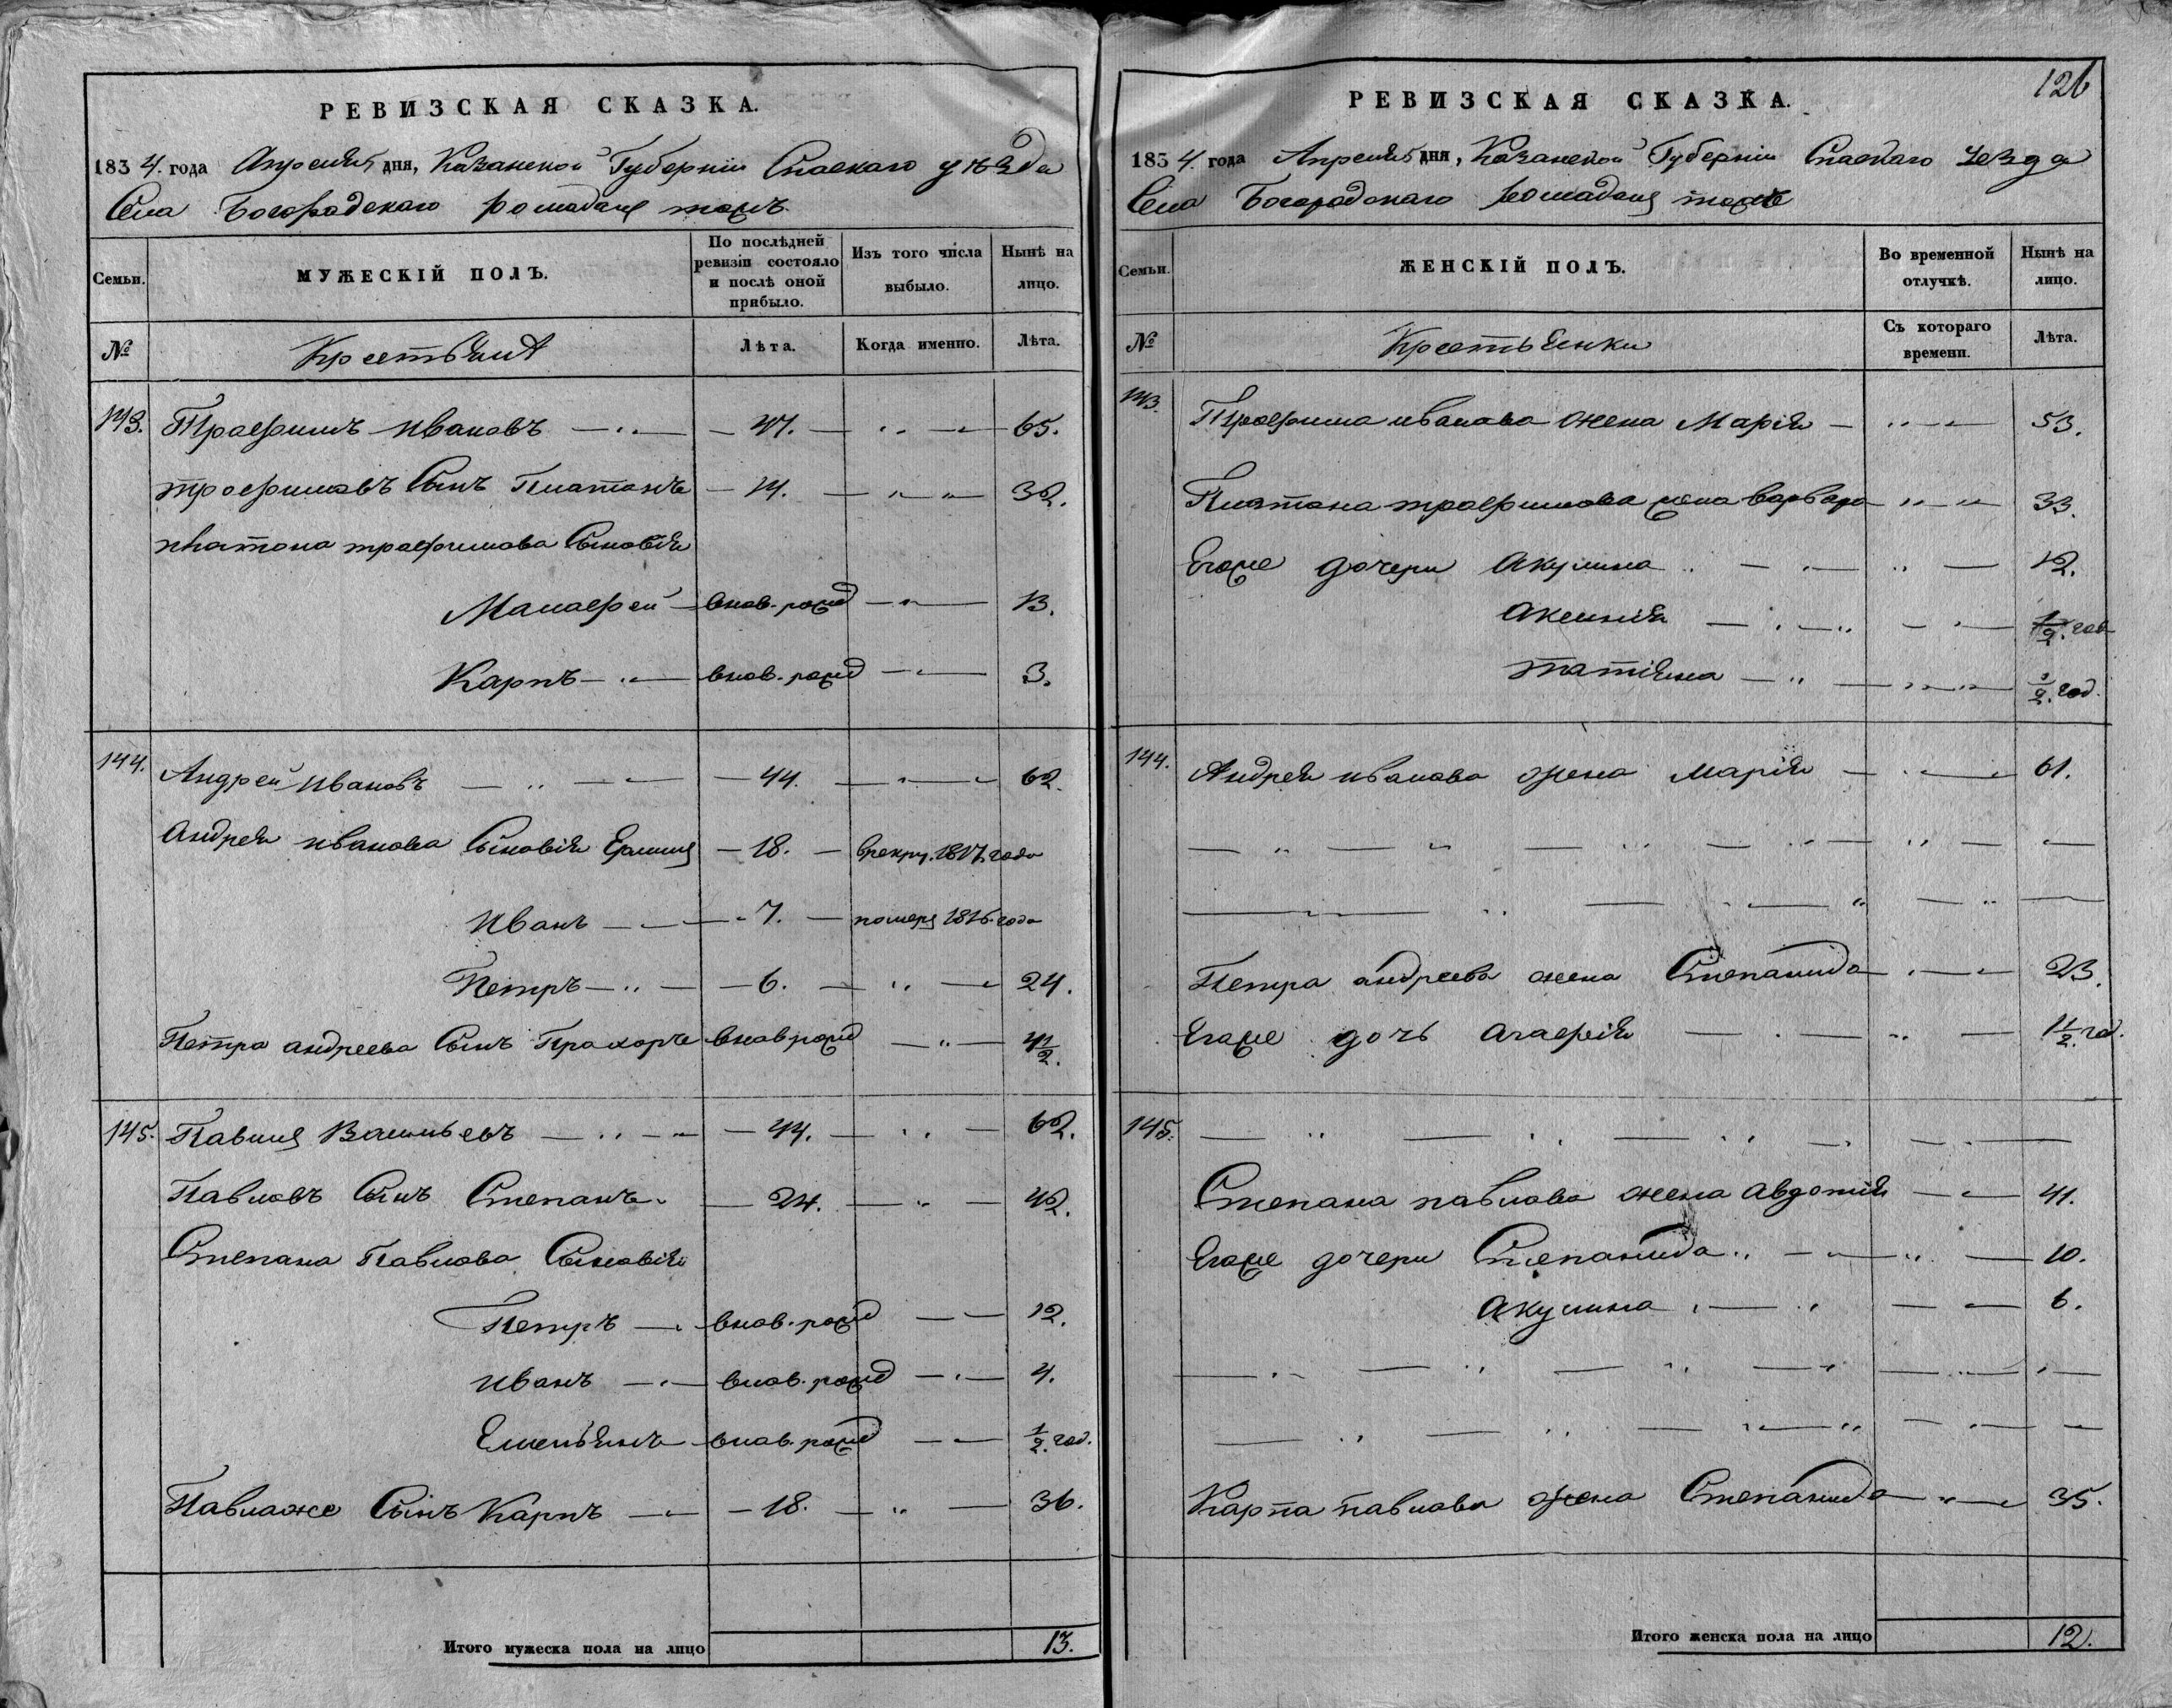 РЕВИЗСКАЯ СКАЗКА.
1834. года Апреля дня, Казанской Губернiи Спаскаго уѣзда
Села Богородскаго Ромадань тожъ
Семьи.
МУЖЕСКІЙ ПОЛЪ.
По послѣдней ревизіи состояло и послѣ оной прибыло.
Изъ того числа выбыло.
Нынѣ на лицо.
№
Крестьяня
Лѣта.
Когда именно.
Лѣта.
143. Трофимъ Ивановъ 47. 65.
трофимовъ Сынъ Платонъ 14. 32.
платона трофимова Сыновiя
Малафей внов. рожд 13.
Карпъ внов. рожд 3.
144. Андрей Ивановъ 44. 62.
Андрея иванова Сыновiя Ермил 18. врекру. 1817. года
Иванъ 7. померъ 1816. года
Петръ 6. 24.
Петра андреева Сынъ Прахоръ внов рожд 4 1/2.
145. Павил Васильевъ 44. 62.
Павловъ Сынъ Степанъ 24. 42.
Степана Павлова Сыновiя
Петръ внов. рожд 12.
Иванъ внов. рожд 4.
Емельянъ внов. рожд 1/2. год.
Павлаже Сынъ Карпъ 18. 36.
Итого мужеска пола на лицо 13.
126
РЕВИЗСКАЯ СКАЗКА.
1834. года Апреля дня, Казанской Губернiи Спаскаго уезда
Села Богородскаго Ромадань тожъ
Семьи.
ЖЕНСКІЙ ПОЛЪ.
Во временной отлучкѣ.
Нынѣ на лицо.
№
Крестьянки
Съ котораго времени.
Лѣта.
143. Трофима иванова жена Марiя 53.
Платона трофимова жена варвара 33.
Егоже дочери Акулина 12.
Аксинiя 1/2. год
татiяна 1/2. год.
144. Андрея иванова жена марiя 61.
Петра андреева жена Степанида 23.
Егоже дочь Агафiя 1 1/2. год.
145.
Степана павлова жена Авдотiя 41.
Егоже дочери Степанида 10.
Акулина 6.
Карпа павлова жена Степанида 35.
Итого женска пола на лицо 12.